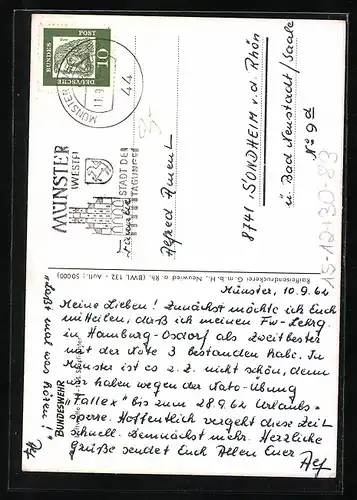 DEUTSCHE
BUNDES
POST
10
MÜNSTER
MÜNSTER
WESTF.
STADT DER
TAGUNGEN
Familie
Alfred
8741 SONDHEIM v.d. Rhön
ü. Bad Neustadt/Saale
No 9d
Raiffeisendruckerei G.m.b.H., Neuwied a. Rh. (BWL 132 - Aufl.: 50000)
BUNDESWEHR
"Laßt mal was hören!"
Münster, 10.9.62
Meine Lieben! Zunächst möchte ich Euch
mitteilen, daß ich meinen Fw-Lehrg.
in Hamburg-Osdorf als Zweitbester
mit der Note 3 bestanden habe. In
Münster ist es z.Z. nicht schön, denn
wir haben wegen der Nato-Übung
"Fallex" bis zum 28.9.62 Urlaubs-
sperre. Hoffentlich vergeht diese Zeit
schnell. Demnächst mehr. Herzliche
Grüße sendet Euch Allen Euer